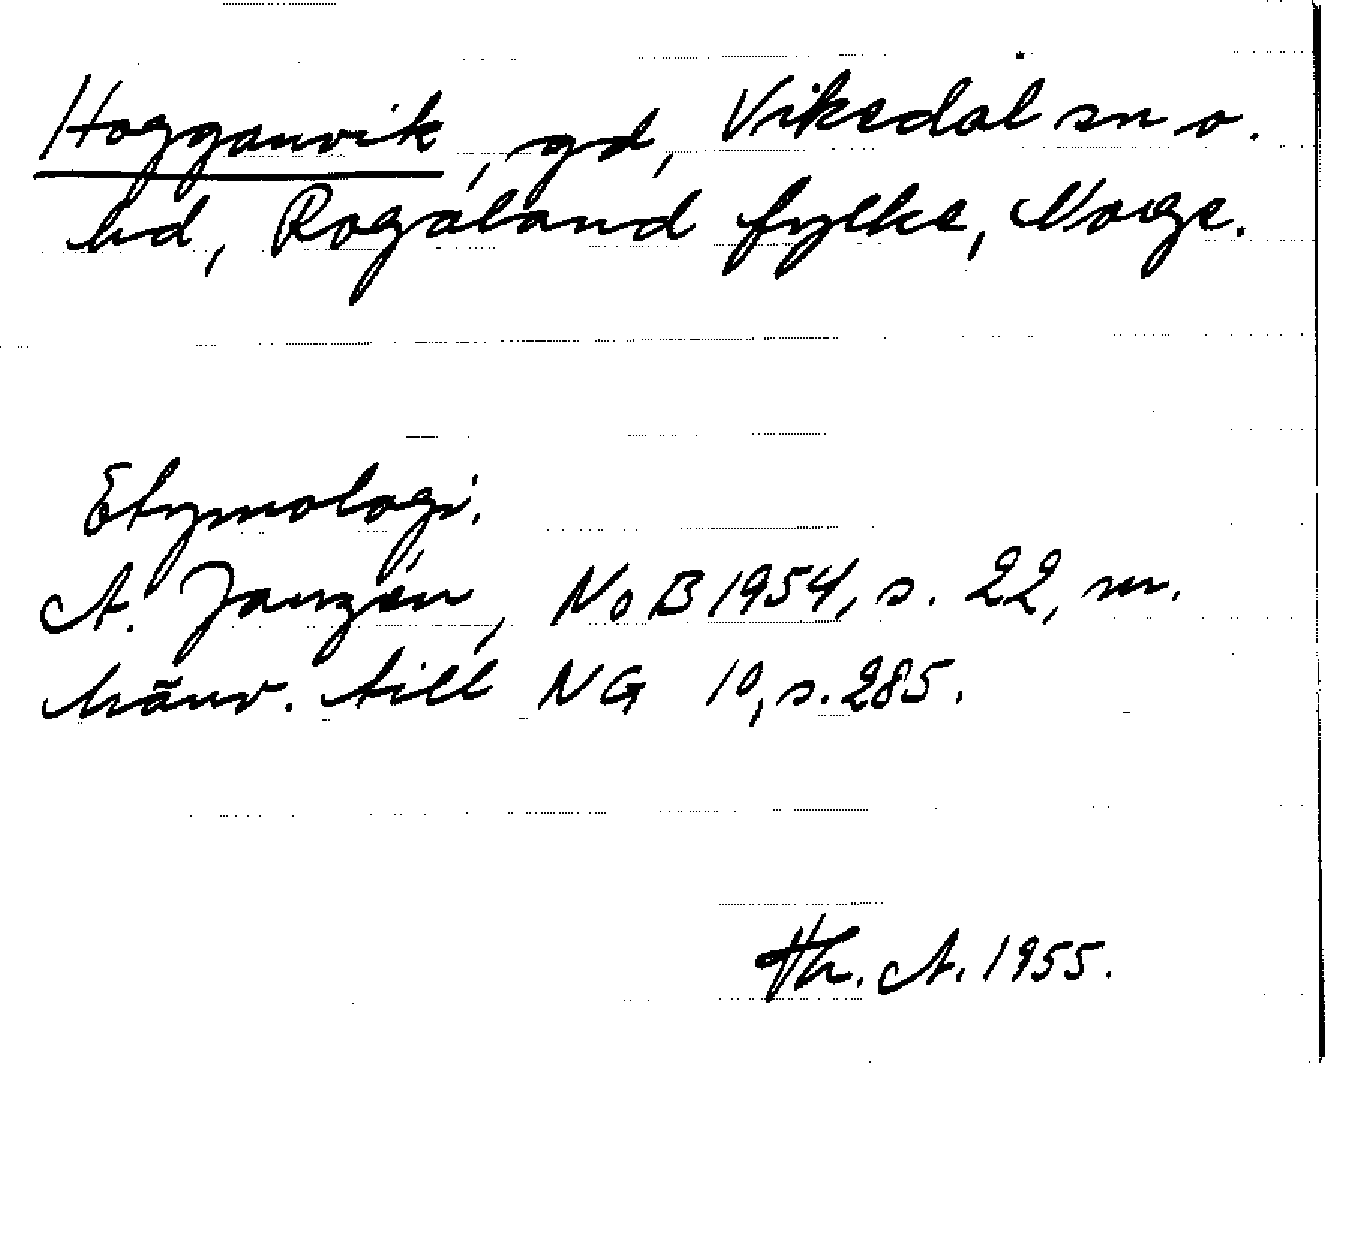 Hogganvik, gd, Viksdal sn o.
hd, Rogaland fylke, Norge.
Etymologi.
A. Janzén, NoB 1954, s. 22, m.
hänv. till NG 10, s. 285.
Th. A. 1955.